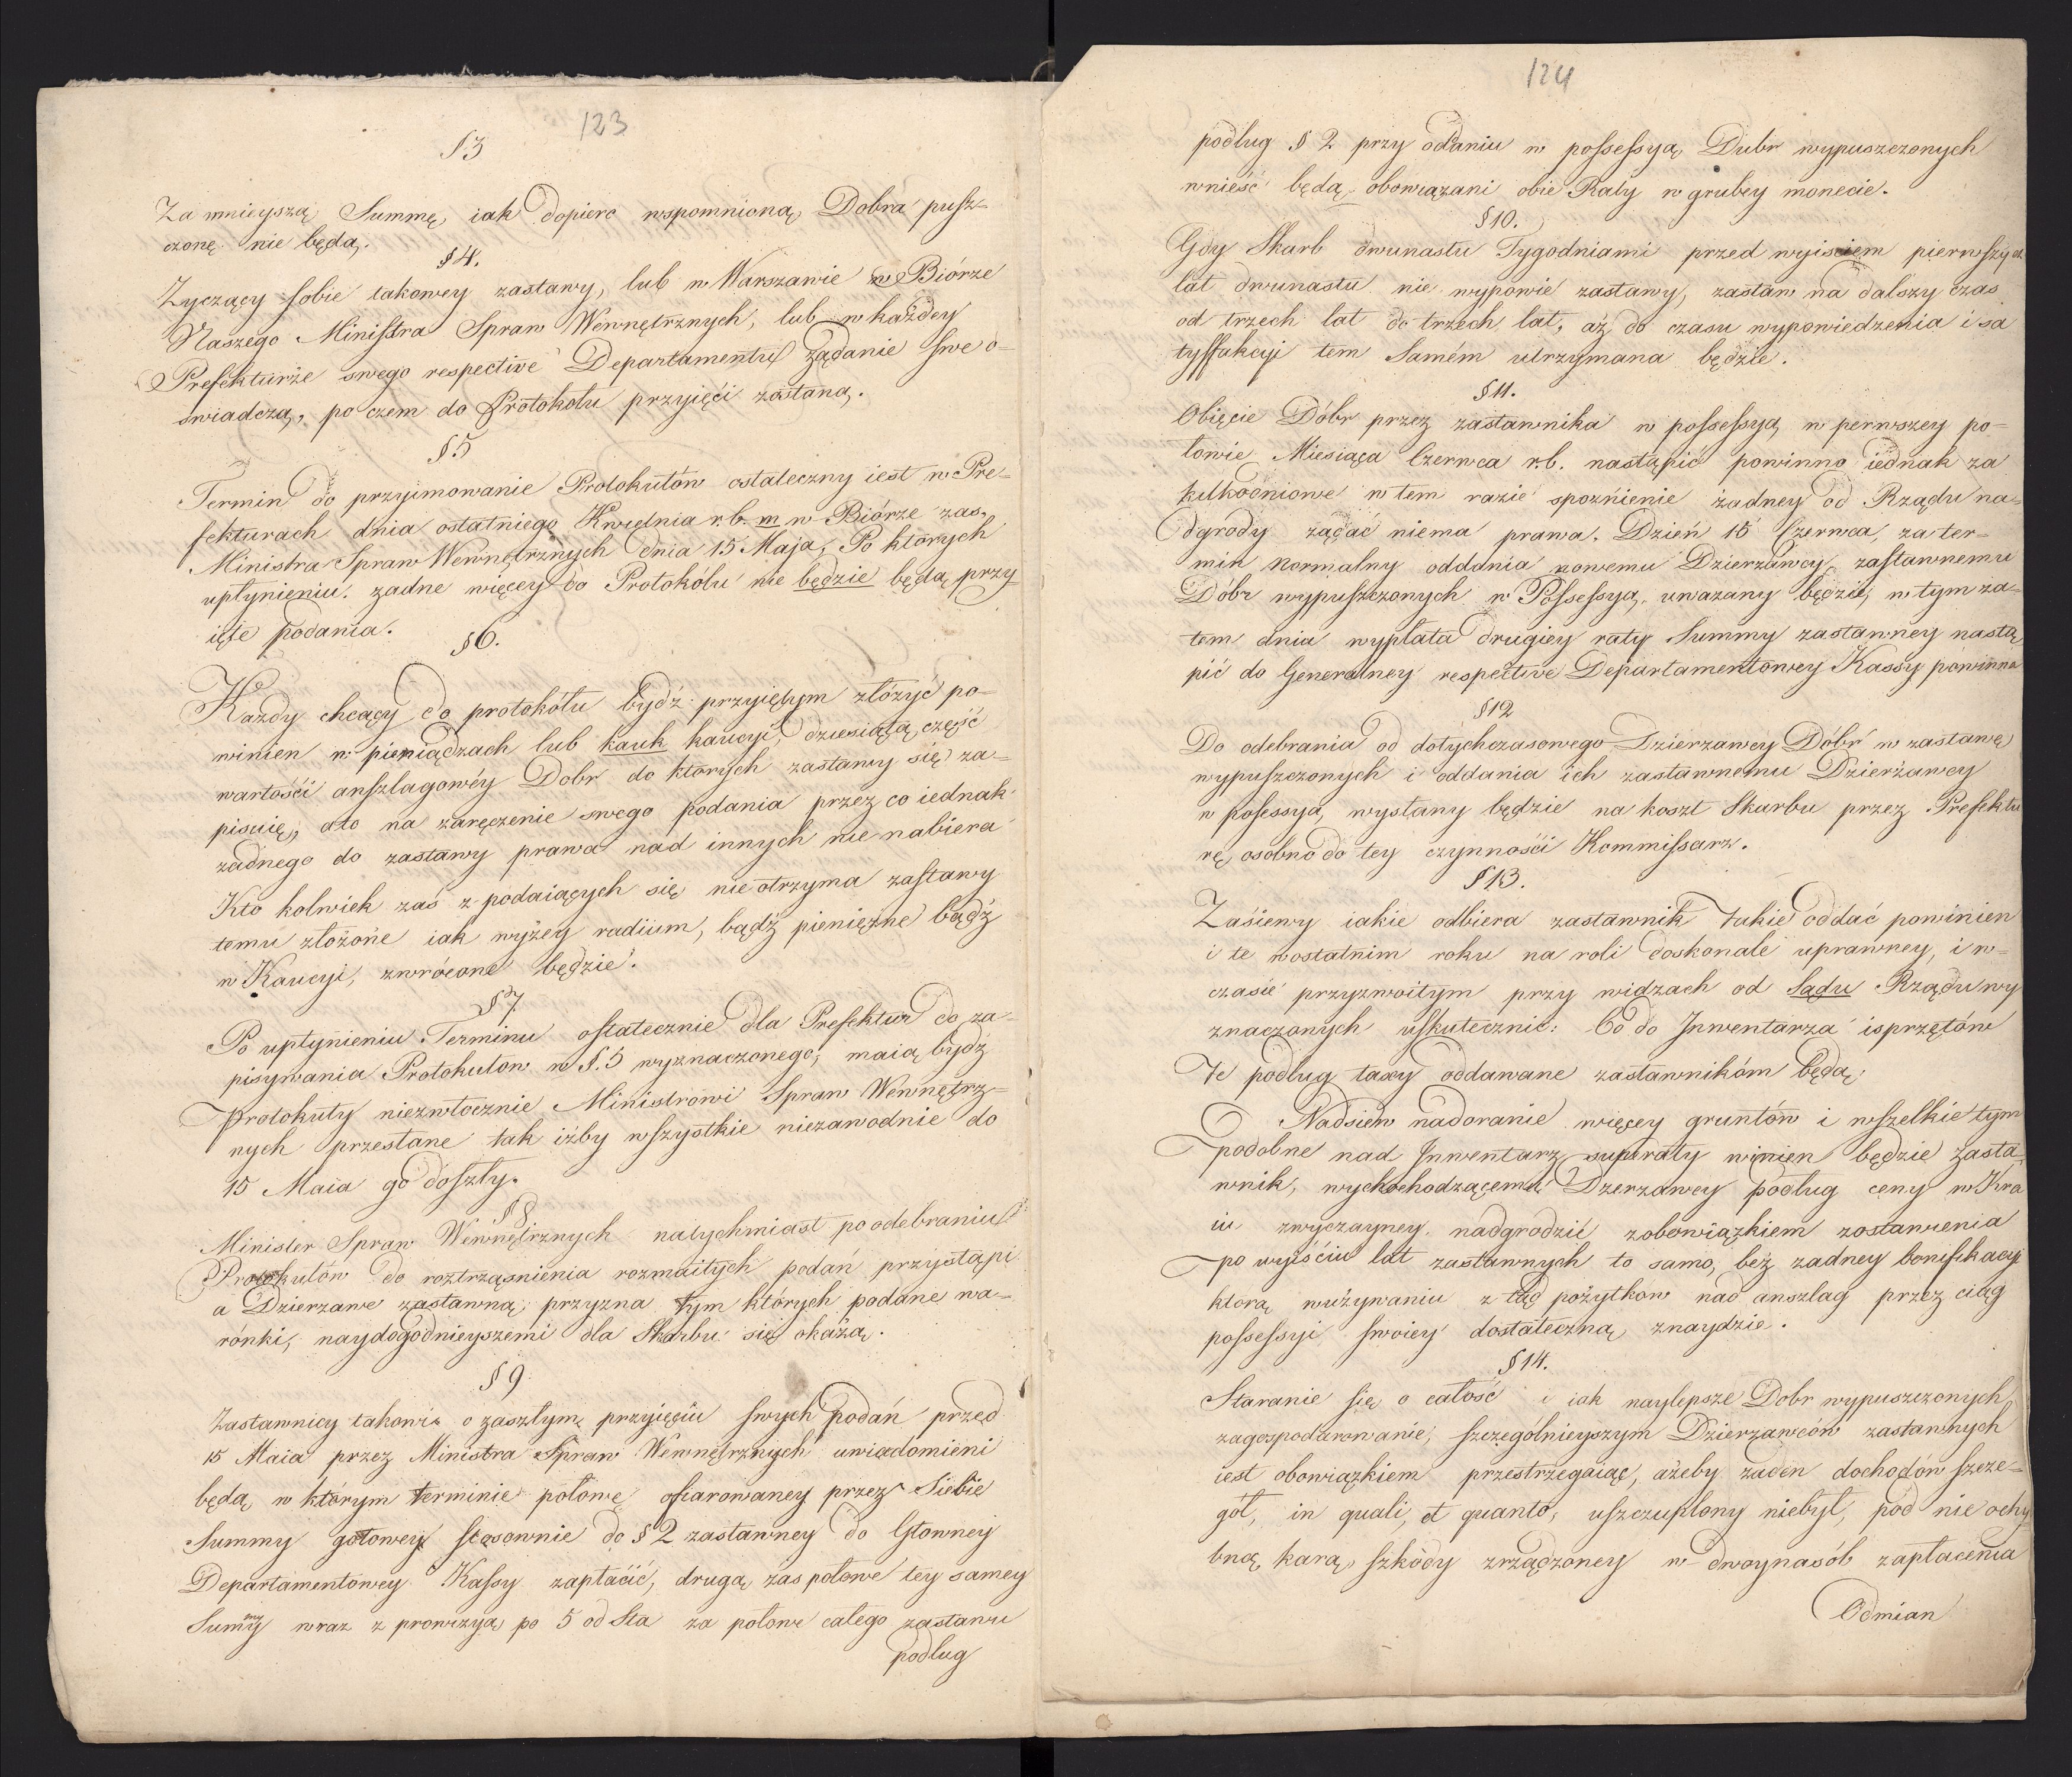 123
§3
Za mnieyszą Summę, iak dopiero wspomnioną Dobra pusz-
czonę nie będą.
§4.
Zyczący sobie takowey zastawy, lub w Warszawie w Biórze
Naszego Ministra Spraw Wewnętrznych, lub w każdey
Prefekturze swego respective Departamentu żądanie swe o-
swiadczą, po czem do Protokołu przyięci zostaną.
§5
Termin do przyimowanie Protokułów ostateczny iest w Pre-
fekturach dnia ostatniego Kwietnia r.b. m w Biórze zas.
Ministra Spraw Wewnętrznych dnia 15 Maja, Po których
upłynieniu. zadne więcey do Protokółu nie będzie będą przy
ięte podania.
§6.
Kazdy chcący do protokółu bydź przyiętym złożyć po-
winien w pieniądzach lub kauk kaucyi, dziesiątą część
wartośći anszlagowéy Dobr do ktorych zastawy się za-
pisuię, ato na zaręczenie swego podania przez co iednak
żadnego do zastawy prawa nad innych nie nabiera
Kto kolwiek zaś z podaiących się nie otrzyma zastawy
temu złożone iak wyżey radium, bądź pieniężne bądź
w Kaucyi, zwrócone będzie.
§7.
Po upłynieniu Terminu ostatecznie dla Prefektur do za-
pisywania Protokułow w §.5 wyznaczonego, maią bydź
Protokuły niezwłocznie Ministrowi Spraw Wewnętrz-
nych przesłane tak iżby wszystkie niezawodnie do
15 Maia go doszły.
§8
Minister Spraw Wewnętrznych natychmiast po odebraniu
Protokułów do roztrząsnienia rozmaitych podań przystąpi
a Dzierzawe zastawną przyzna tym których podane wa-
rónki, naydogodnieyszemi dla Skarbu się okażą.
§9
Zastawnicy takowi o zaszłym przyięciu swych podań przed
15 Maia przez Ministra Spraw Wewnętrznych uwiadomieni
będą w którym terminie połowę ofiarowaney przez Siebie
Summy gotowey stosownie do §2 zastawney do Głowney
Departamentowey Kassy zapłacić, drugą zas połowe tey samey
Sumy wraz z prowizyą po 5 od Sta za połowe całego zastawu
podług
124
podług §2 przy oddaniu w possessyą Dubr wypuszczonych
wnieść będą obowiązani obie Raty w grubey monecie.
§10.
Gdy Skarb dwunastu Tygodniami przed wyisciem pierwszych
lat dwunastu nie wypowie zastawy, zastaw na dalszy czas
od trzech lat do trzech lat, aż do czasu wypowiedzenia i sa
tysfakcyi tem Samém utrzymana będzie.
§11.
Obięcie Dóbr przez zastawnika w possessyą w perwszey po-
łowie Miesiąca Czerwca r.b. nastąpić powinno iednak za
kilkodniowe w tem razie spoznienie żadney od Rządu na-
dgrody żądać niema prawa. Dzień 15 Czerwca, za ter-
min normalny oddania nowemu Dzierzawcy zastawnemu
Dóbr wypuszczonych w Possessyą, uwazany będzie, w tym za-
tem dnia wypłata drugiey raty Summy zastawney nastą
pić do Generalney respective Departamentowey Kassy powinna
§12
Do odebrania od dotychczasowego Dzierzawcy Dóbr w zastawę
wypuszczonych i oddania ich zastawnemu Dzierżawcy
w posessyą, wysłany będzie na koszt Skarbu przez Prefektu
rę, osobno do tey czynnośći Kommissarz.
§13.
Zaśiewy iakie odbiera zastawnik takie oddać powinien
i te wostatnim roku na roli doskonale uprawney, i w-
czasie przyzwoitym przy widzach od Sądu Rządu wy
znaczonych uskutecznić: Co do Inwentarza isprzętów
Te podług taxy oddawane zastawnikóm będą.
Nadsiew nadoranie więcey gruntów i wszelkie tym
podobne nad Inwentarz superaty winien będzie zasta
wnik, wychochodzącemu Dzerzawcy podług ceny w Kra
iu zwyczayney nadgrodzić zobowiązkiem zostawienia
po wyiściu lat zastawnych to samo, bez zadney bonifikacyi
ktorą wużywaniu z tąd pożytkow nad anszlag przez ciąg
possessyi swoiey dostateczną, znaydzie.
§14.
Staranie się o całość i iak naylepsze Dobr wypuszczonych
zagospodarowanie, szczególnieyszym Dzierzawców zastawnych
iest obowiązkiem przestrzegaiąc, ażeby zaden dochodów szcze-
gół, in quali, et quanto, uszczuplony niebył, pod nie ochy
bną, karą, szkody zrządzoney w dwoynasób zapłacenia
Odmian